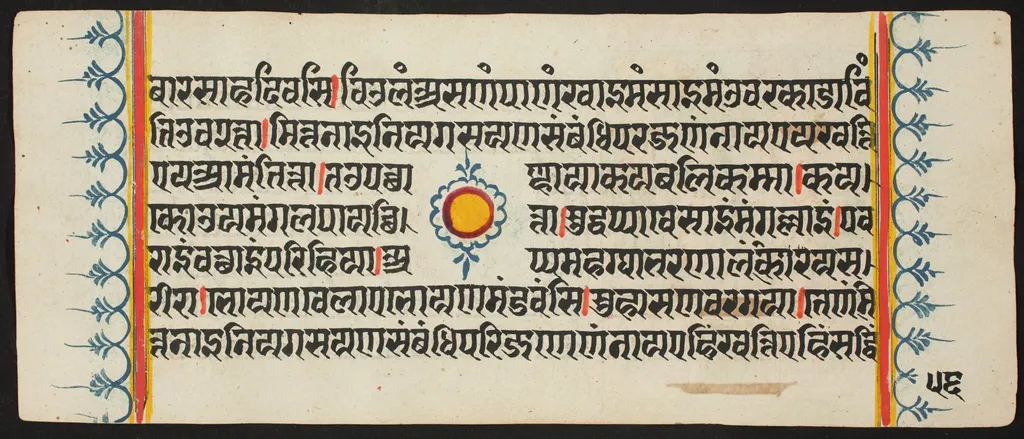 बारसाहदिवसे।विउलंअसणंपाणंखाइमंसाइमंउवरकडाविं
तिउवरत्ता।मित्तनाइनियगसयणसंबंधिपरिजणंनायएयखत्ति
एयआमंतित्ता।तउपच्छा ण्हायाकयबलिकम्मा।कय।
कोउयमंगलपायच्छि। त्ता।सुद्धप्पावेसाइंमंगल्लाइं।पव
राइंवच्छाइंपरिहिया।अ प्पमहग्घाभरणालंकारियस।
रीरा।भोयणवेलाएभोयणमंडवंसि।सुहासणवरगया।तेणंमि
त्तनाइनियगसयणसंबंधिपरिजणेणंनायएहिंखत्तिएहिंसद्धिं
५६